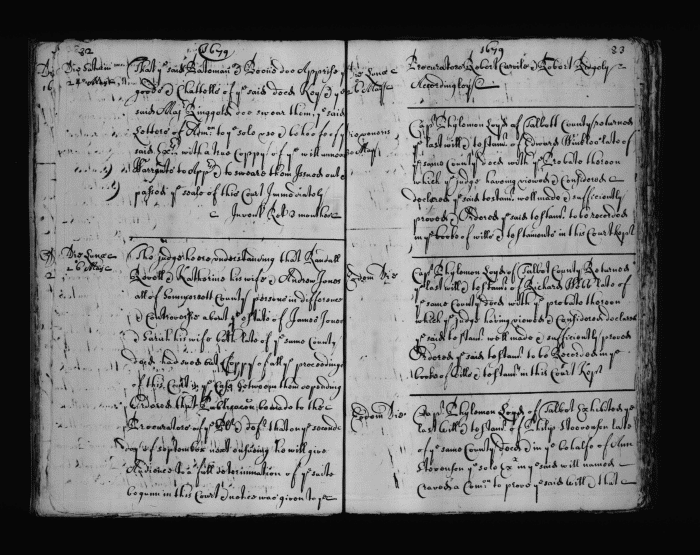 82
1679
Die Saturni
That ye said Bateman & Boone doe Apprise ye
goods & Chattells of ye said decd Key & ye
said Maj Ringgold doe sweare them, ye said
Letters of Adm to ye sole use & behoofe of
said with a true Coppy of ye will annext
Warrants to App & to sweare them Issued out &
passed ye seale of this Court Immediately
Invent Ret 3 monthes
Die Lunae
26 Maij
The judge hereunderstanding that Randall
Revell & Katherine his wife & Andrew Jones
all of Sommersett County persons in difference
& Controversie about ye estate of James Jones
& Sarah his wife both late of ye same County
decd had sued out Coppy of all ye proceedings
of this Court in ye Case between them depending
Ordered that Publicacon be made to the
Procurators of ye & deft that ye second
day of September next ensuing he will give
Audience to a full determination of ye suite
begunn in this Court & notice was given to ye
1679
83
Die Lunae
26 Maij
Procurators Robert Carvile & Robert Ridgely
Accordingly
Die
Maij
Capt Phylemon Loyd of Talbott County returned
ye last will & testam of Edward Winkles late of
ye same County decd with ye Probate thereon
which ye judge having viewed & Considered
declared ye said testam well made & sufficiently
proved & Ordered ye said testam to be recorded
in ye booke of wills & testaments in this Court kept
Eodem Die
Capt Phylemon Loyd of Talbot County Returned
ye last will & testam of Richard Webb late of
ye same County decd with ye probate thereon
which ye judge having viewed & Considered declared
ye said testam well made & sufficiently proved
Ordered ye said testam to be Recorded in ye
booke of wills & testam in this Court Kept
Eodem Die
Capt Phylemon Loyd of Talbot Exhibited ye
last will & testam of Philip Stevenson late
of ye same County decd & in ye behalfe of Ann
Stevenson ye sole Ex in ye said will named
Craved a Com to prove ye said will & that